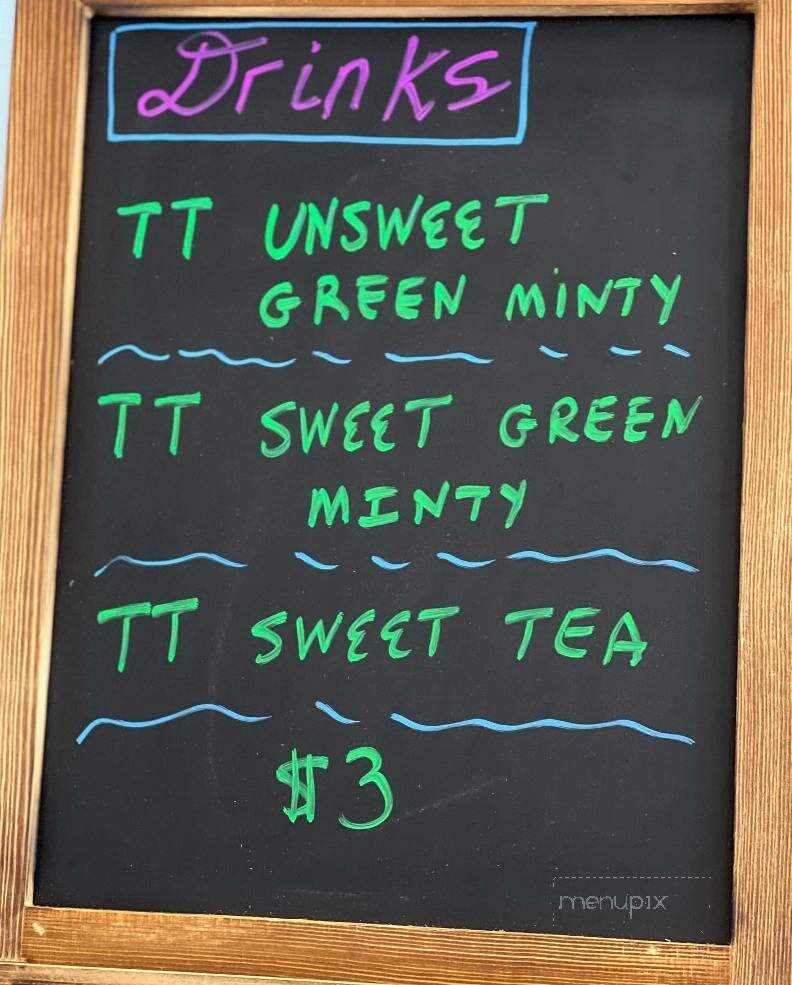 Drinks
TT UNSWEET
GREEN MINTY
TT SWEET GREEN
MINTY
TT SWEET TEA
$3
menupix